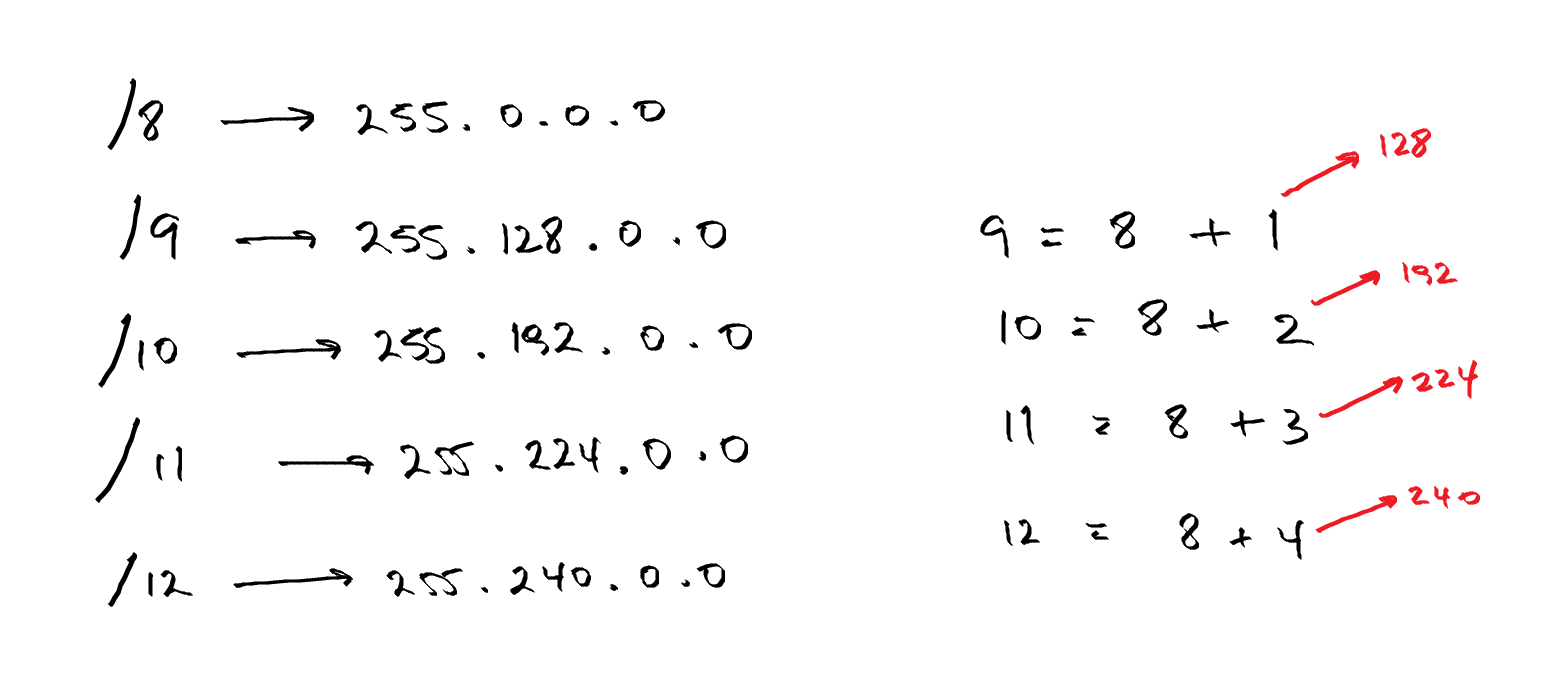 /8 → 255.0.0.0
/9 → 255.128.0.0
/10 → 255.192.0.0
/11 → 255.224.0.0
/12 → 255.240.0.0
9 = 8 + 1 → 128
10 = 8 + 2 → 192
11 = 8 + 3 → 224
12 = 8 + 4 → 240